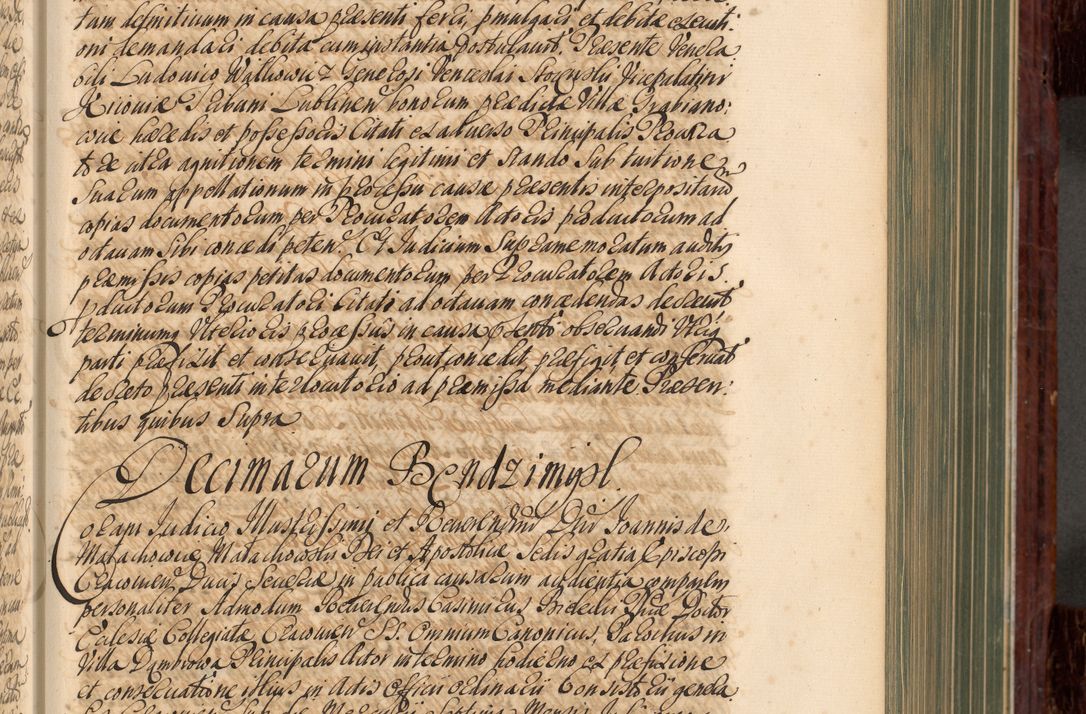 tam definitivum in causa præsenti ferri, pmulgari et debitæ executi:
oni demandari debita cum instantia postulavit. Præsente Venera
bili Ludovico Walkowicz Generosi Venceslai Vicepalatini
Lublinen bonorum prædictæ Villæ Grabiano:
voiæ hæredis et possessoris Citati ex adverso Principalis Procura
tore citra agnitionem termini legitimi et stando sub tuitione
suarum appellationum in processu causæ præsentis interpositarum
copias documentorum per Procuratorem Actoris productorum ad
octavam sibi concedi peten. Et Judicium Supramemoratum auditis
præmissis copias petitas documentorum per Procuratorem Actoris
pductorum Procuratori Citati ad octavam concedendas decrevit
terminumq Ulterioris processus in causa pñti observandi Utriq
parti præfixit et conservavit, prout concedit præfigit et conservat
decreto præsenti interlocutorio ad præmissa mediante. Præsen:
tibus quibus supra
Decimarum Bendzimysl.
Coram Judicio Illustrissimi et Reverendmi Dñi Joannis de
Małachowice Małachowski Dei et Apostolicæ Sedis gratia Episcopi
Cracovien Ducis Severiæ in publica causarum audientia comparen
personaliter Admodum Reverendus Casimirus Doctor
Ecclesiæ Collegiatæ Cracovien SS. Omnium Canonicus, Parochus in
Villa Dambrowa Principalis Actor in termino hodierno ex præfixione
et conservatione illius in Actis Officii ordinarii Consistorii genera